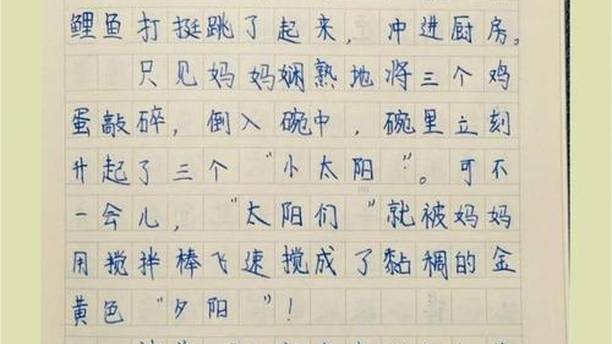 鲤鱼打挺跳了起来，冲进厨房。
只见妈妈娴熟地将三个鸡
蛋敲碎，倒入碗中，碗里立刻
升起了三个“小太阳”。可不
一会儿，“太阳们”就被妈妈
用搅拌棒飞速搅成了黏稠的金
黄色“夕阳”！